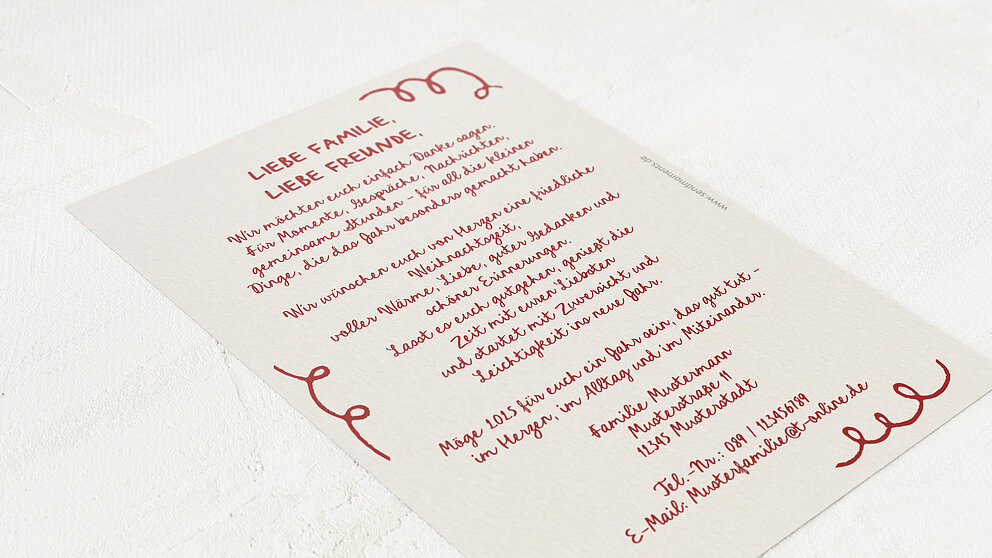 LIEBE FAMILIE,
LIEBE FREUNDE,
Wir möchten euch einfach Danke sagen.
Für Momente, Gespräche, Nachrichten,
gemeinsame Stunden – für all die kleinen
Dinge, die das Jahr besonders gemacht haben.
Wir wünschen euch von Herzen eine friedliche
Weihnachtszeit,
voller Wärme, Liebe, guter Gedanken und
schöner Erinnerungen.
Lasst es euch gutgehen, genießt die
Zeit mit euren Liebsten
und startet mit Zuversicht und
Leichtigkeit ins neue Jahr.
Möge 2025 für euch ein Jahr sein, das gut tut –
im Herzen, im Alltag und im Miteinander.
Familie Mustermann
Musterstraße 11
12345 Musterstadt
Tel.-Nr.: 089 / 123456789
E-Mail: Musterfamilie@t-online.de
www.sendmoments.de